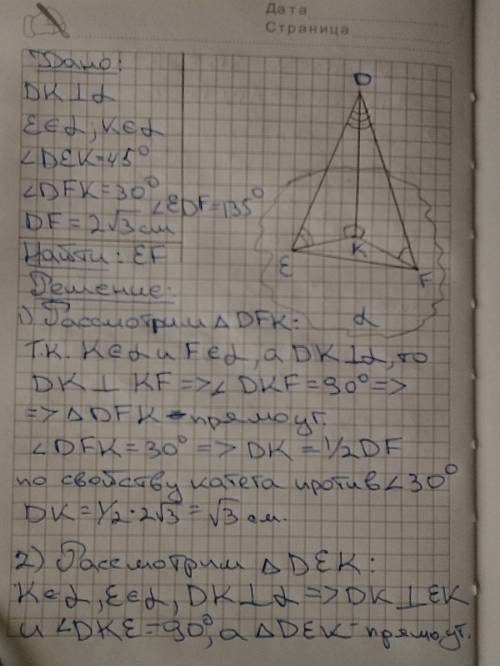 Дата
Страница
Дано:
DK⊥α
E∈α; K∈α
∠DEK=45°
∠DFK=30°
∠EDF=135°
DF=2√3 см
Найти: EF
Решение:
1) Рассмотрим △DFK:
Т.к. K∈α и F∈α, а DK⊥α, то
DK⊥KF=>∠DKF=90°=>
=>△DFK - прямоуг.
∠DFK=30°=>DK=1/2DF
по свойству катета против∠30°
DK=1/2·2√3=√3 см.
2) Рассмотрим △DEK:
K∈α, E∈α, DK⊥α=>DK⊥EK
и ∠DKE=90°, а △DEK - прямоуг.
D
E
K
F
α